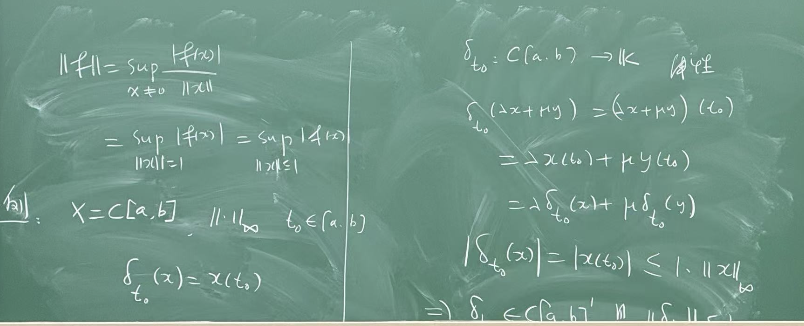 ‖f‖ = sup_{x≠0} |f(x)| / ‖x‖
= sup_{‖x‖=1} |f(x)| = sup_{‖x‖≤1} |f(x)|
例: X = C[a,b], ‖·‖_∞ t₀ ∈ [a,b]
δ_{t₀}(x) = x(t₀)
δ_{t₀}: C[a,b] → 𝕂
δ_{t₀}(λx+μy) = (λx+μy)(t₀)
= λx(t₀) + μy(t₀)
= λδ_{t₀}(x) + μδ_{t₀}(y)
|δ_{t₀}(x)| = |x(t₀)| ≤ 1·‖x‖_∞
⇒ δ ∈ C[a,b]' ‖δ‖ ≤